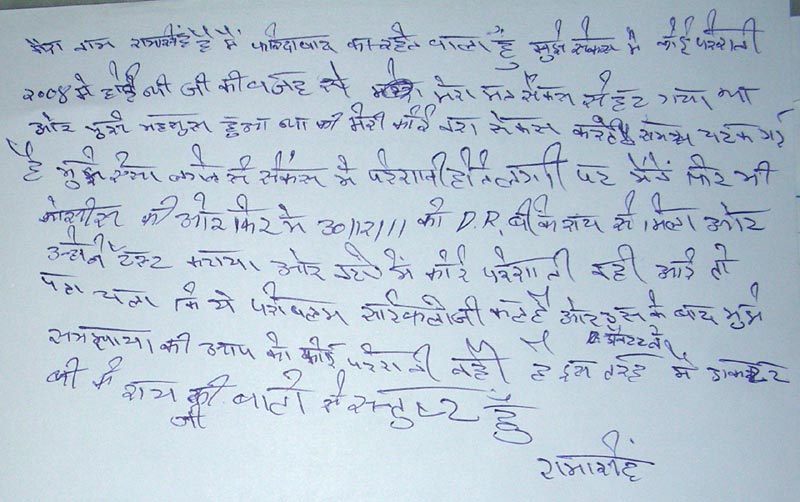 मेरा नाम रामसींह है मैं फरिदाबाद का रहने वाला हुँ मुझे सेकस मे कोई परेशानी
2008 मे होई थी जी की वजह से मेरा मन सेकस से हट गया था
और मुझे महसुस हुआ था की मेरी कोई नस सेकस करते समय चटक गई
है मुझे ऐसा लगने से सेकस मे परेशानी होने लगी पर मैंने फिर भी
कोसीस की और फिर मे 30/12/11 को D.R. बी के राय से मिला और
उन्होने टैस्ट कराया और उसमें कोई परेशानी नही आई तो
पता चला कि ये परोबलम साईकलोजी कहते है और उस के बाद मुझे
समझाया की आप को कोई परेशानी नही है इस तरह मे डाकटर
बी के राय जी की बातो से सन्तुष्ट हुँ
रामसींह